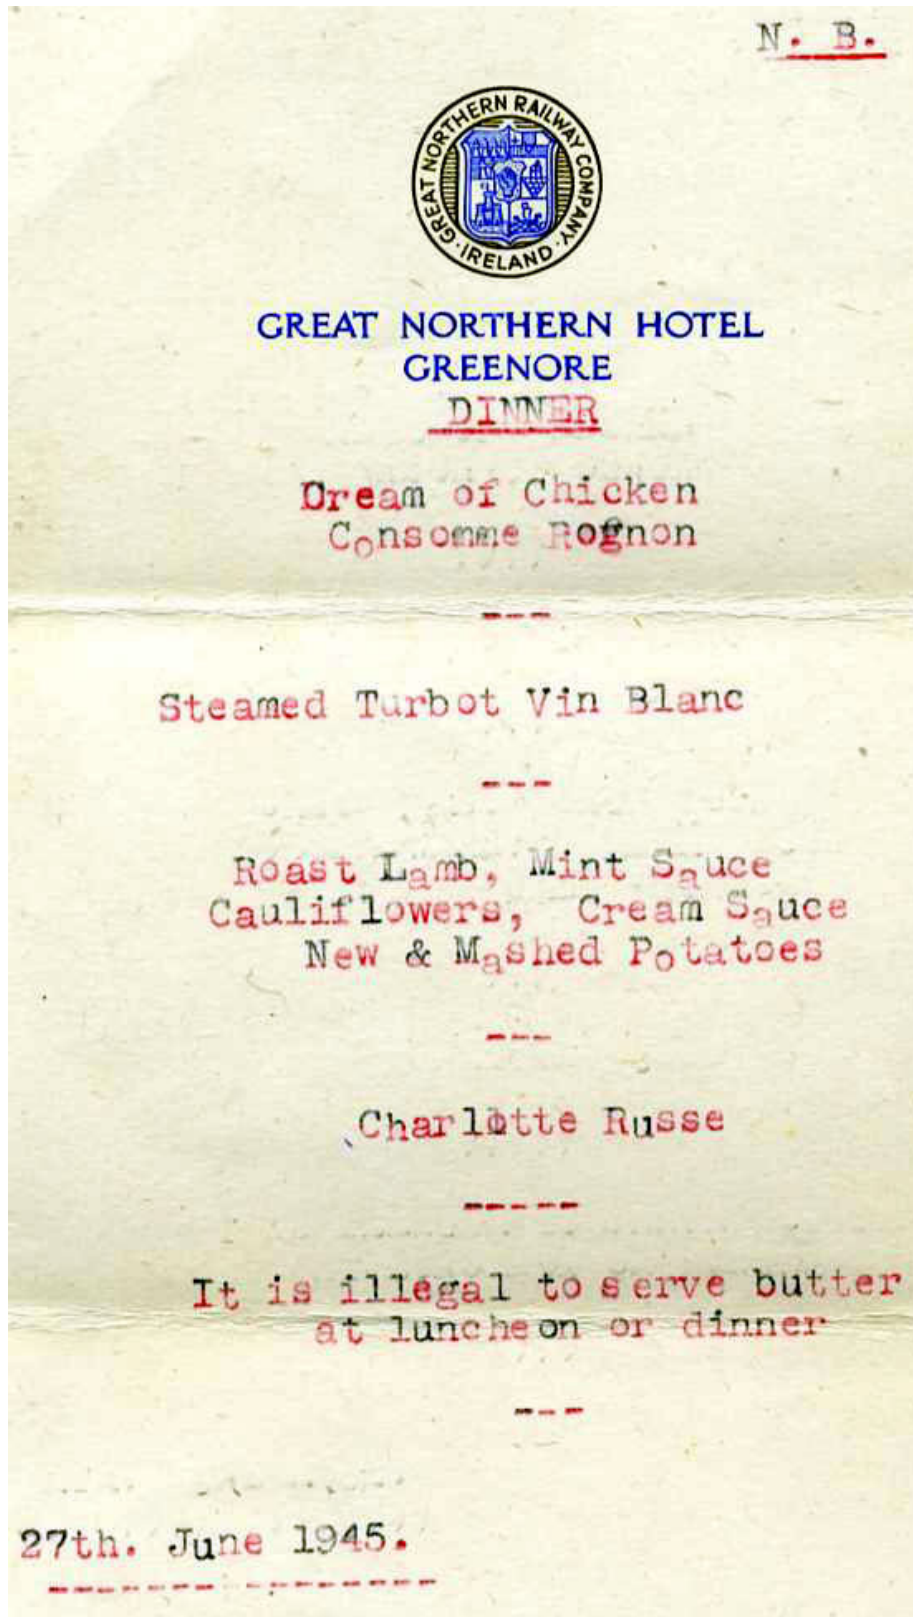 N. B.
GREAT NORTHERN RAILWAY COMPANY · IRELAND ·
GREAT NORTHERN HOTEL
GREENORE
DINNER
Cream of Chicken
Consomme Rognon
---
Steamed Turbot Vin Blanc
---
Roast Lamb, Mint Sauce
Cauliflowers, Cream Sauce
New & Mashed Potatoes
---
Charlotte Russe
-----
It is illegal to serve butter
at luncheon or dinner
---
27th. June 1945.